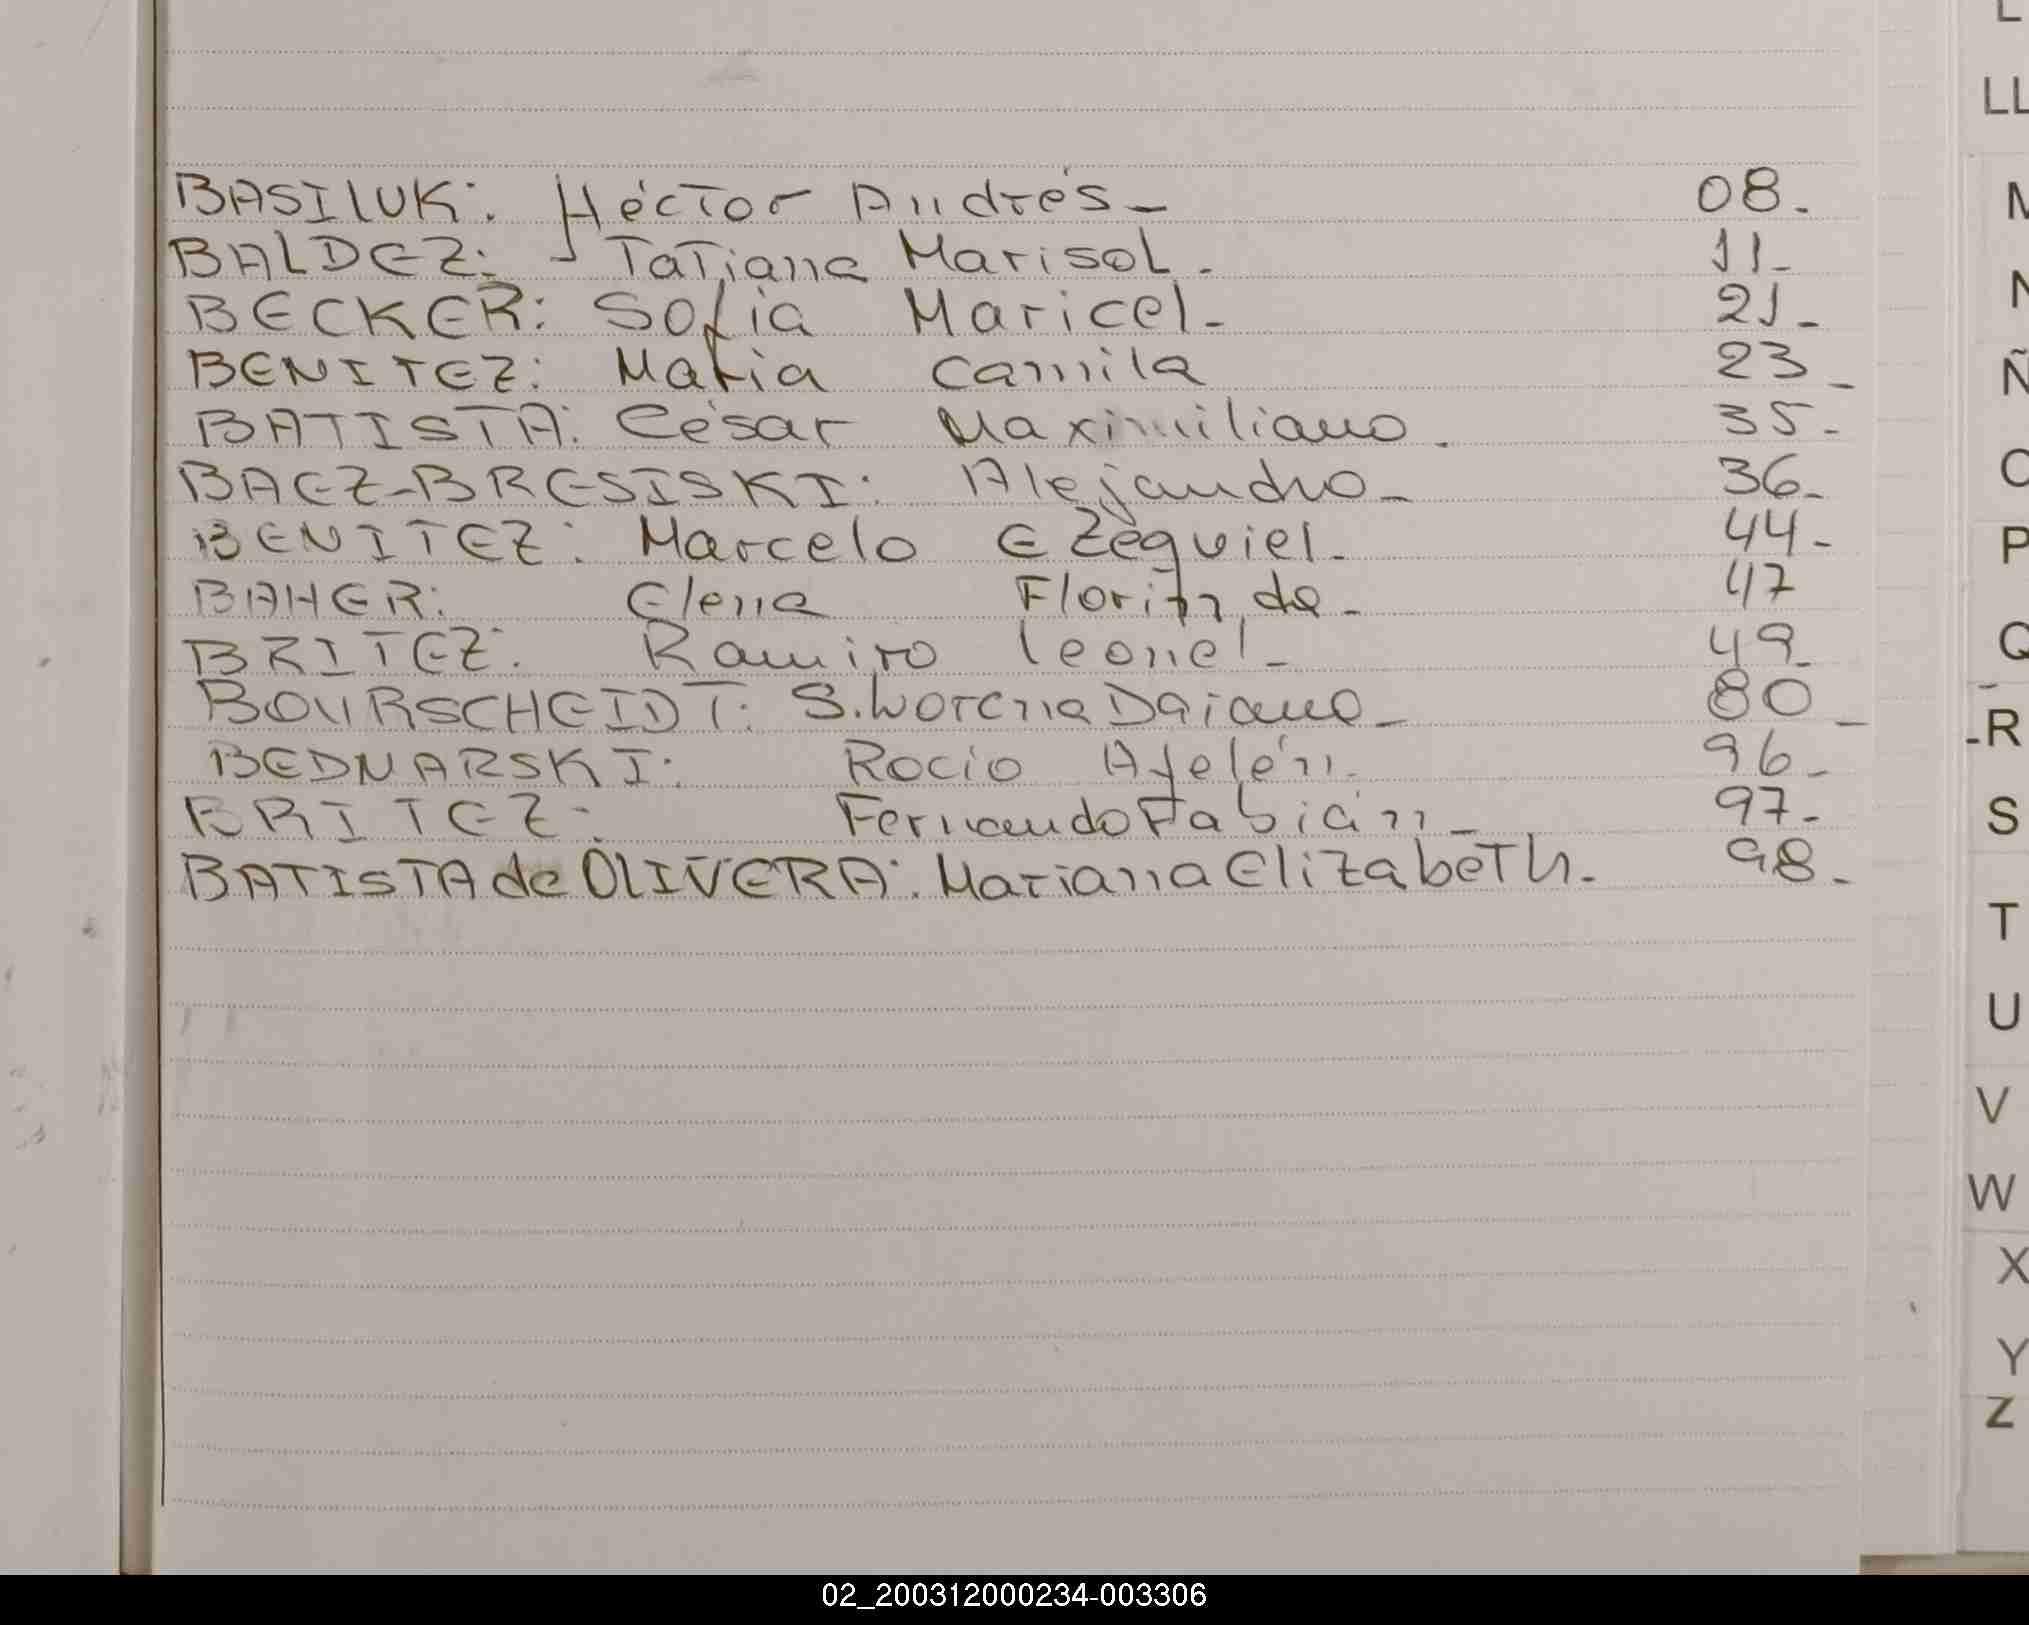 BASILUK: Héctor Andrés - 08.
BALDEZ: Tatiana Marisol. 11-
BECKER: Sofia Maricel- 21-
BENITEZ: Maria Camila 23-
BATISTA: César Maximiliano. 35-
BAEZ-BRESISKI: Alejandro- 36-
BENITEZ: Marcelo EZequiel- 44-
BAHER: Elena Florinda- 47
BRITEZ: Ramiro Leonel- 49-
BOURSCHEIDT: S. Lorena Daiana- 80-
BEDNARSKI: Rocio Ayelén- 96-
BRITEZ: Fernando Fabián- 97-
BATISTA de OLIVERA: Mariana Elizabeth. 98-
L
LL
M
N
Ñ
O
P
Q
R
S
T
U
V
W
X
Y
Z
02_200312000234-003306